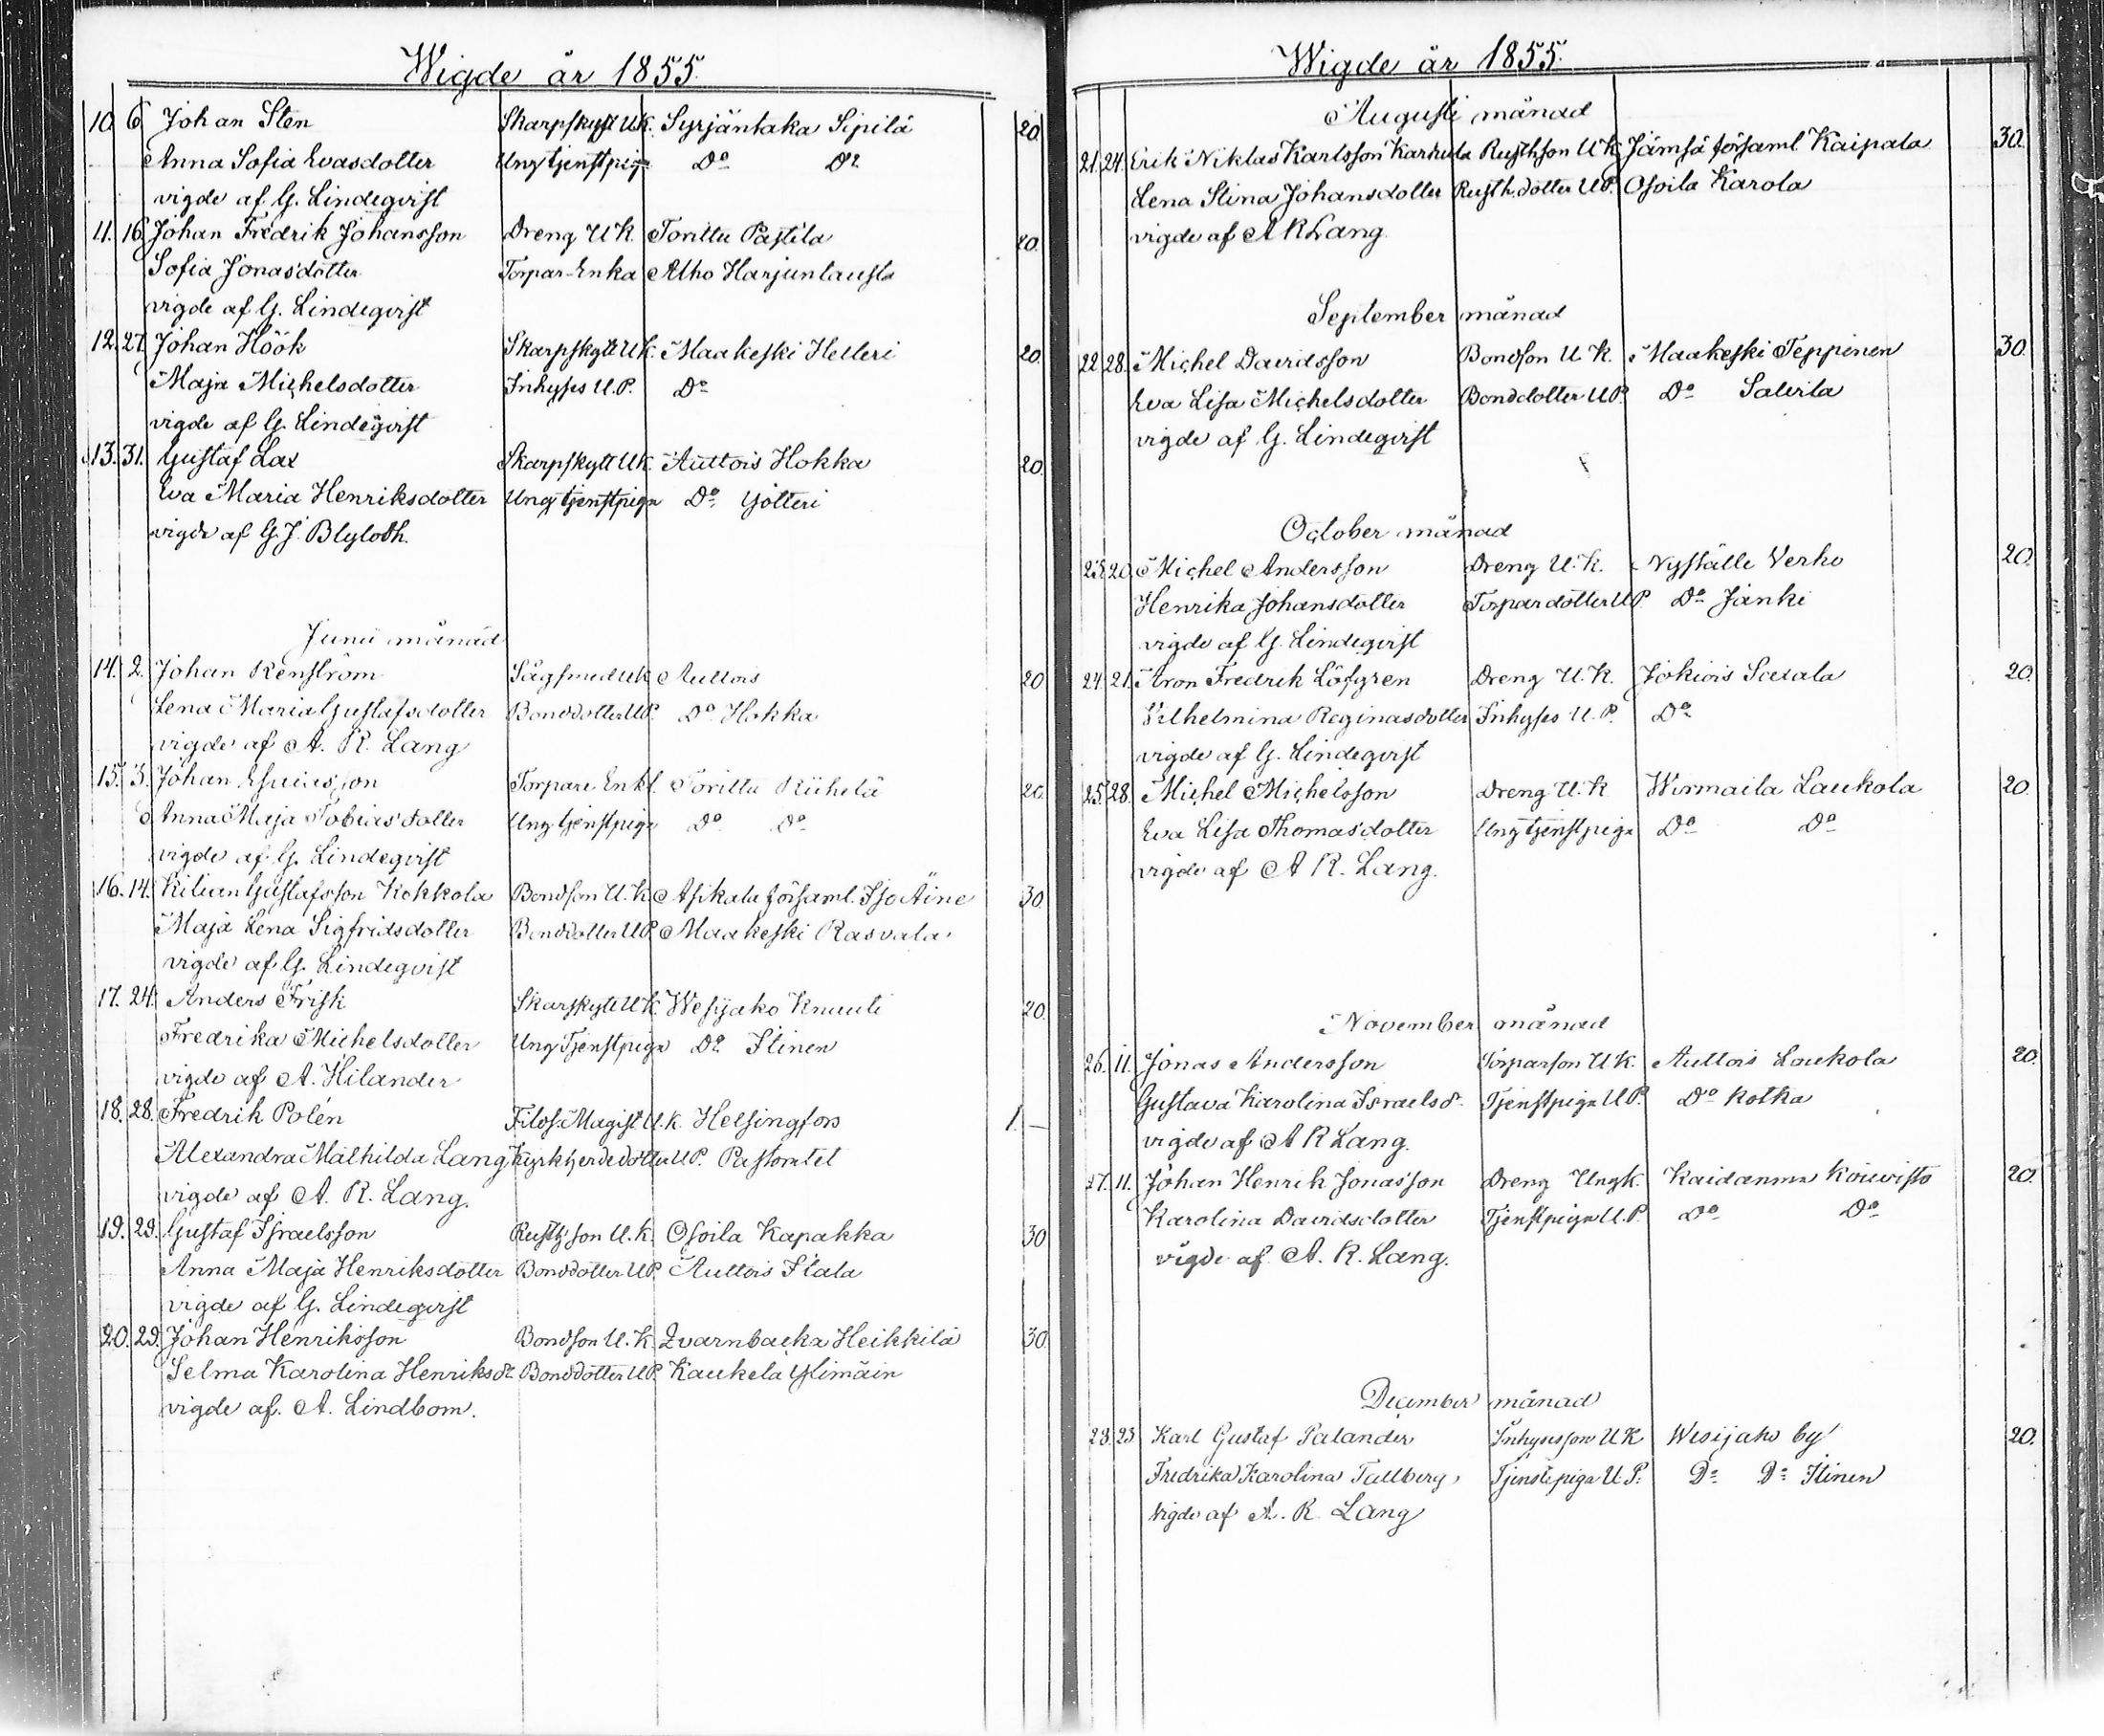 Wigde år 1855.
10. 6. Johan Sten Skarpskytt U.K. Syrjäntaka Sipilä 20.
Anna Sofia Evasdotter Ung tjenstpiga Do Do
vigde af G. Lindeqvist
11. 16. Johan Fredrik Johansson Dreng U.K. Torittu Pastila 20.
Sofia Jonasdotter Torpar-Enka Alho Harjuntausta
vigde af G. Lindeqvist
12. 27. Johan Höök Skarpskytt U.K. Maakeski Helleri 20.
Maja Michelsdotter Inhyses U.P. Do
vigde af G. Lindeqvist
13. 31. Gustaf Lax Skarpskytt U.K. Auttois Hokka 20.
Eva Maria Henriksdotter Ung tjenstpiga Do Yötteri
vigde af G. J. Blyloth.
Junii månad
14. 2. Johan Renström Sågsmed U.K. Auttois 20
Lena Maria Gustafsdotter Bonddotter U.P. Do Hokka
vigde af A. R. Lang
15. 3. Johan Esaiasson Torpare Enkl. Torittu Riihelä 20.
Anna Maja Tobiasdotter Ung tjenstpiga Do Do
vigde af G. Lindeqvist
16. 14. Kilian Gustafsson Kokkola Bondson U.K. Asikala församl. Iso Äine 30
Maja Lena Sigfridsdotter Bonddotter U.P. Maakeski Rasvala
vigde af G. Lindeqvist
17. 24. Anders Frisk Skarskytt U.K. Wesijako Knuuti 20.
Fredrika Michelsdotter Ung Tjenstpiga Do Itinen
vigde af A. Hilander
18. 28. Fredrik Polén Filos. Magist U.K. Helsingfors 1. —
Alexandra Mathilda Lang Kyrkherdedotter U.P. Pastoratet
vigde af A. R. Lang.
19. 29. Gustaf Israelsson Rusth.son U.K. Osoila Kapakka 30
Anna Maja Henriksdotter Bonddotter U.P. Auttois Itala
vigde af G. Lindeqvist
20. 29. Johan Henriksson Bondson U.K. Qvarnbacka Heikkilä 30
Selma Karolina Henriksdr Bonddotter U.P. Kaukela Ylimäin
vigde af. A. Lindbom.
Wigde år 1855.
Augusti månad
21. 24. Erik Niklas Karlsson Karkula Rusthson U.K. Jämsä församl Kaipala 30.
Lena Stina Johansdotter Rusth.dotter U.P. Osoila Karola
vigde af A R Lang
September månad
22. 28. Michel Davidsson Bondson U.K. Maakeski Teppinen 30.
Eva Lisa Michelsdotter Bonddotter U.P. Do
vigde af G. Lindeqvist
October månad
23. 20. Michel Andersson Dreng U.K. Nyställe Verho 20.
Henrika Johansdotter Torpardotter U.P. Do Janki
vigde af G. Lindeqvist
24. 21. Aron Fredrik Löfgren Dreng U.K. Jokiois Saxala 20.
Wilhelmina Reginasdotter Inhyses U.P. Do
vigde af G. Lindeqvist
25. 28. Michel Michelsson Dreng U.K Wirmaila Laukola 20
Eva Lisa Thomasdotter Ung tjenstpiga Do Do
vigde af A R. Lang.
November månad
26. 11. Jonas Andersson Torparson U.K. Auttois Laukola 20.
Gustava Karolina Israelsd. Tjenstpiga U.P. Do Kotka
vigde af A R Lang.
27. 11. Johan Henrik Jonasson Dreng Ungk. Kaidanma Koivisto 20.
Karolina Davidsdotter Tjenstpiga U.P. Do Do
vigde af A. R. Lang.
December månad
28. 23 Karl Gustaf Palander Inhysesson U K Wesijako by 20.
Fredrika Karolina Tallberg, Tjenstepiga U.P. Do Do Itinen
Vigde af A. R. Lang